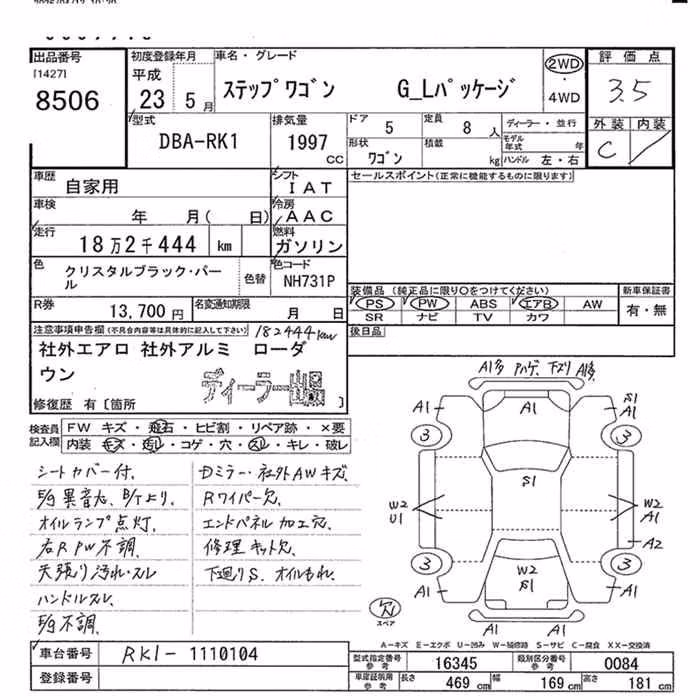 出品番号
[1427]
8506
初度登録年月
平成
23 5月
車名・グレード
ステップワゴン G_Lパッケージ
2WD
・
4WD
評価点
3.5
外装 内装
C
型式
DBA-RK1
排気量
1997
CC
ドア
5
定員
8人
形状
ワゴン
積載
kg
ディーラー・並行
モデル年式 年
ハンドル 左・右
車歴
自家用
シフト
IAT
車検
年 月( 日)
冷房
AAC
走行
18万2千444 km
燃料
ガソリン
色
クリスタルブラック・パール
色替
色コード
NH731P
セールスポイント(正常に機能するものに限ります)
R券
13,700円
名変通知期限
月 日
装備品 (純正品に限り○をつけてください)
PS PW ABS エアB AW
SR ナビ TV カワ
新車保証書
有・無
後日品
注意事項申告欄(不具合内容等は具体的に記入して下さい)
182444km
社外エアロ 社外アルミ ローダ
ウン
ディーラー出品
修復歴 有〔箇所 〕
検査員記入欄
FW キズ・飛石・ヒビ割・リペア跡・×要
内装 キズ・汚れ・コゲ・穴・スレ・キレ・破レ
シートカバー付.
オイルランプ点灯.
右R PW不調.
天張り汚れ・スレ
ハンドルスレ.
E/g不調.
Dミラー・社外AWキズ.
Rワイパー欠.
エンドパネル加工穴.
修理キット欠.
下廻りS. オイルもれ.
A1 S1
A1
A1
3 3
S1
W2
U1
W2
A1
A2
3 3
W2
S1
A1 A1
欠
スペア
A1 A1
A-キズ E-エクボ U-凹み W-補修跡 S-サビ C-腐食 XX-交換済
車台番号
RK1-1110104
登録番号
型式指定番号
参考
16345
類別区分番号
参考
0084
車庫証明用
参考
長さ 469cm
幅 169cm
高さ 181cm